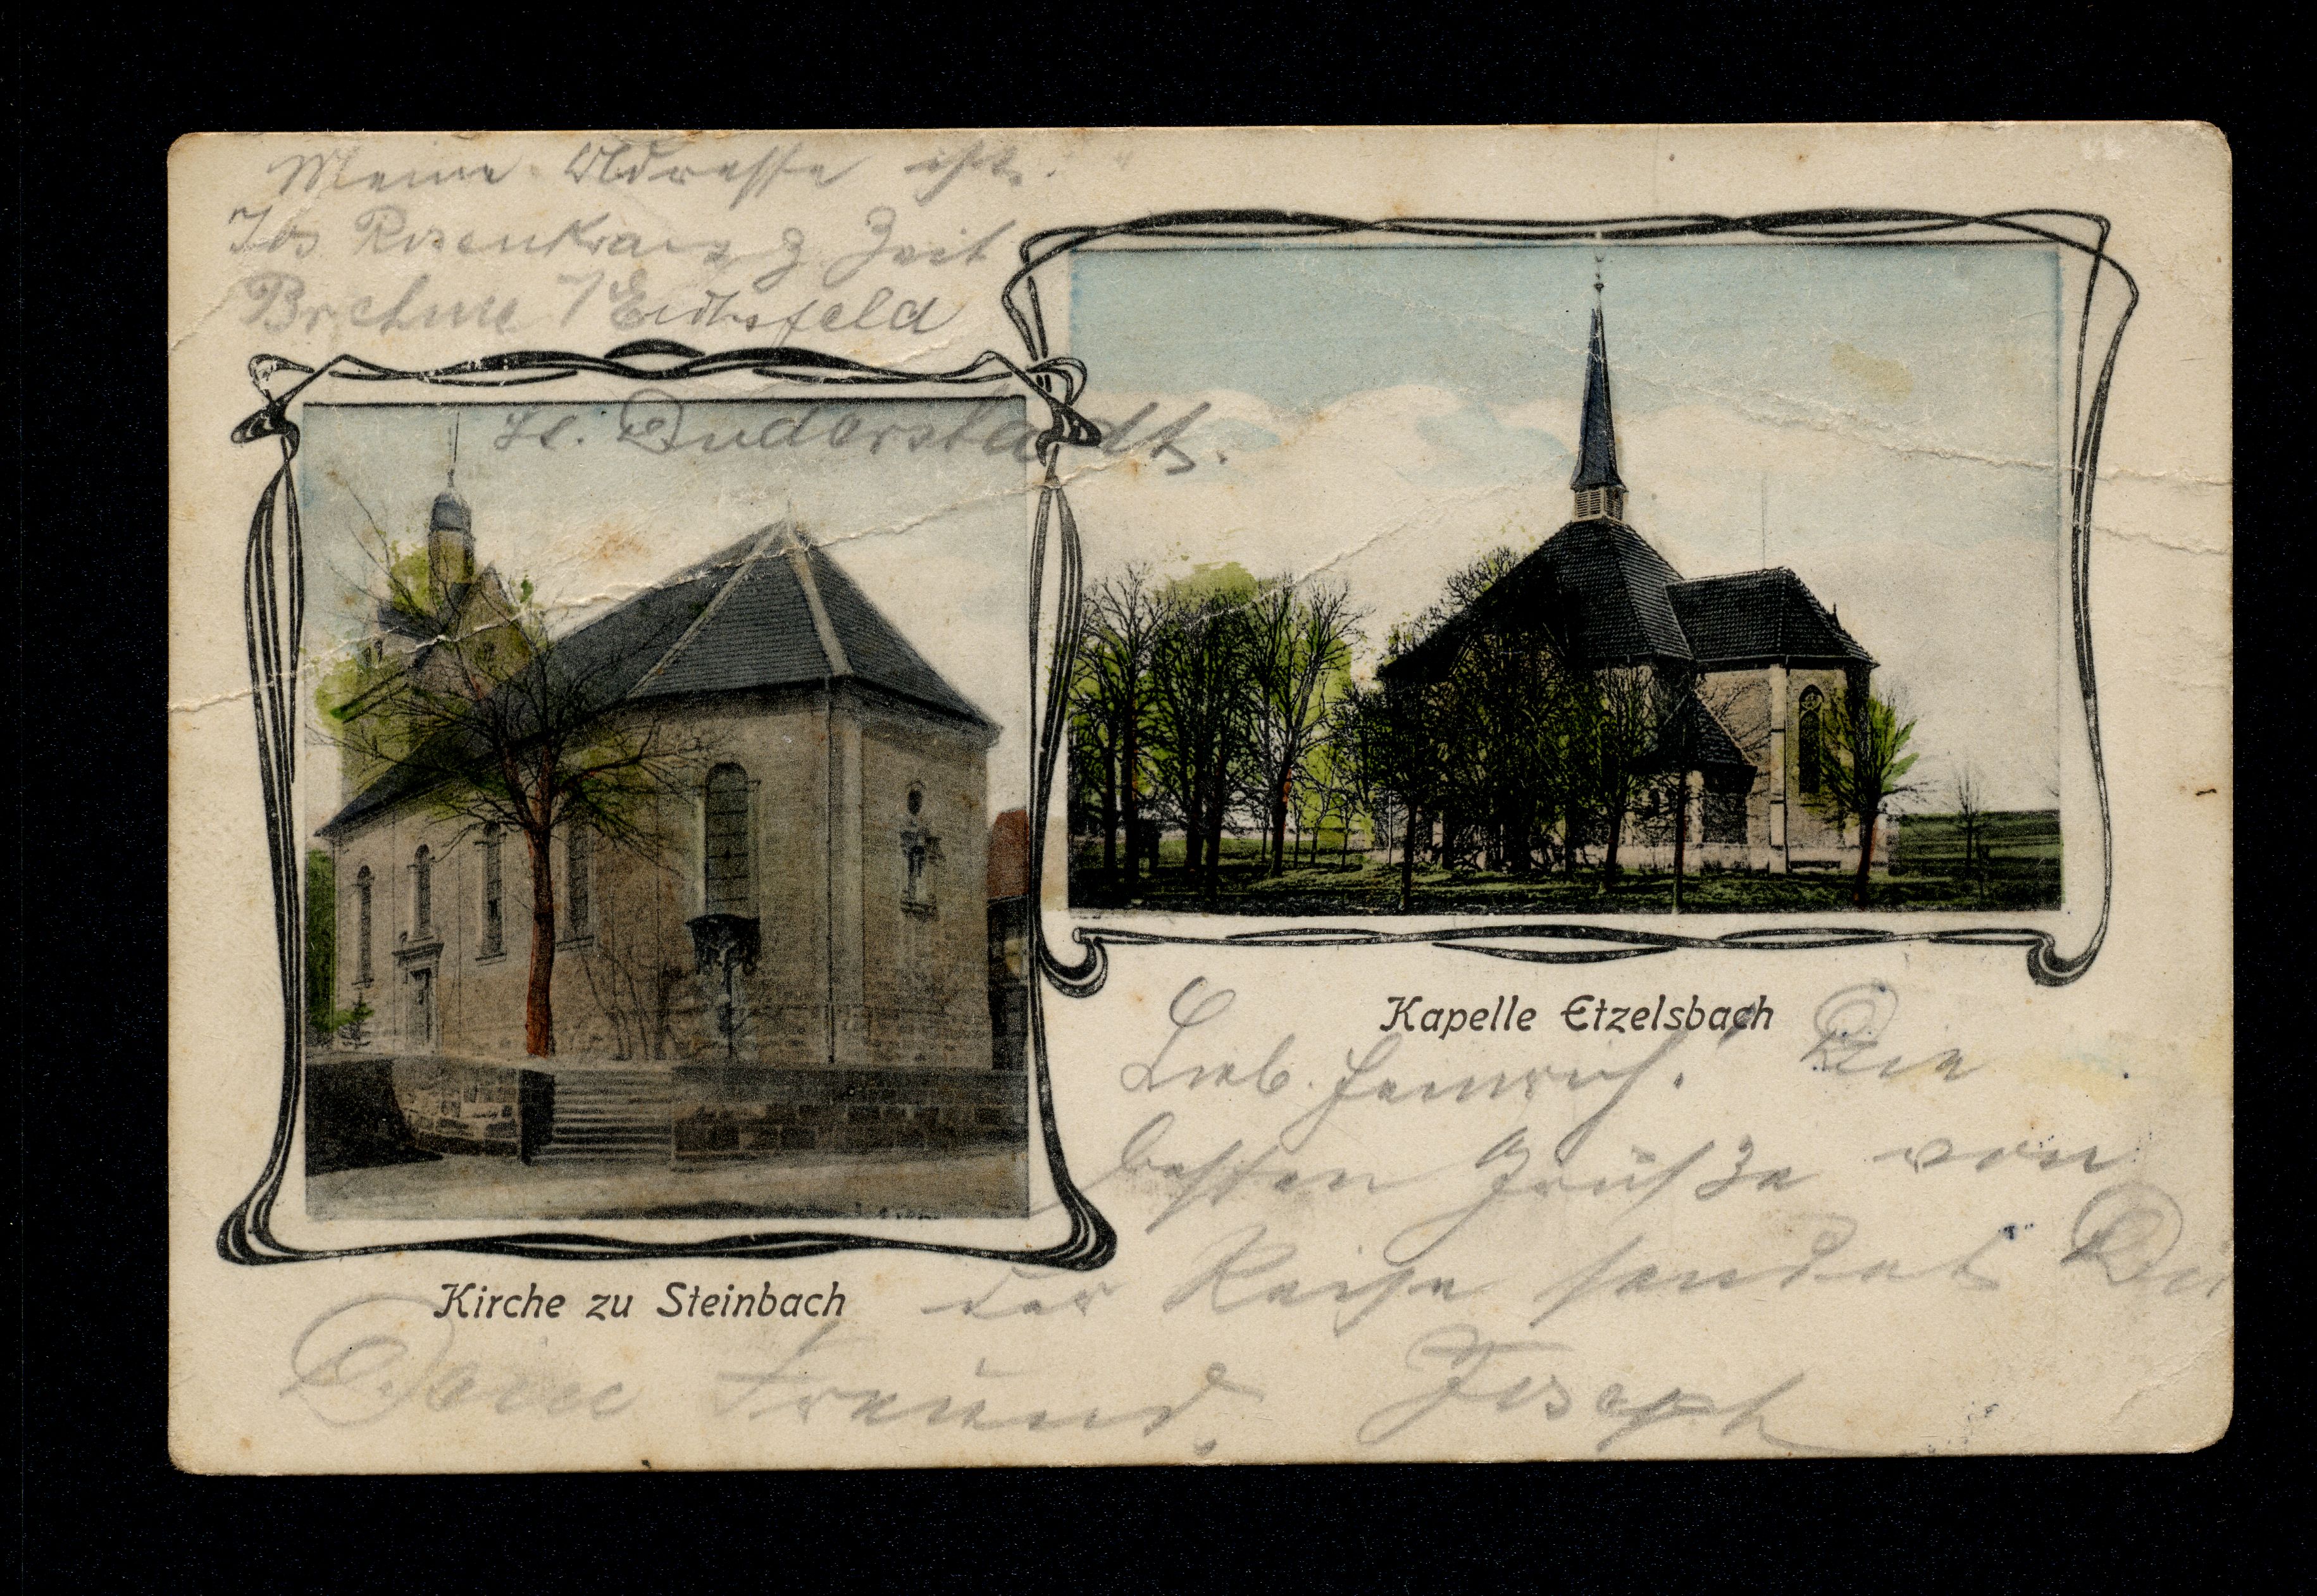 Meine Adresse ist.
Jos Rosenkranz z Zeit
Brehme /Eichsfeld
Duderstadt.
Kapelle Etzelsbach
Lieb. Heinrich! Die
besten Grüße von
Kirche zu Steinbach
der Reise sendet Dir
Dein Freund Joseph